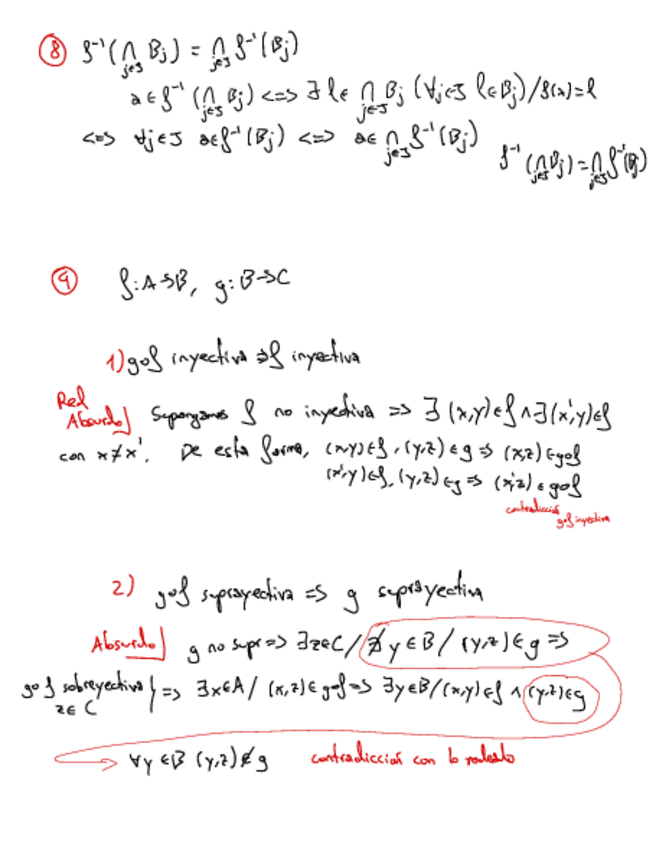 8) f⁻¹(⋂_{j∈J} B_j) = ⋂_{j∈J} f⁻¹(B_j)
a ∈ f⁻¹(⋂_{j∈J} B_j) <=> ∃ l ∈ ⋂_{j∈J} B_j (∀j∈J l∈B_j) / f(a)=l
<=> ∀j∈J a∈f⁻¹(B_j) <=> a∈ ⋂_{j∈J} f⁻¹(B_j)
f⁻¹(⋂_{j∈J} B_j) = ⋂_{j∈J} f⁻¹(B_j)
9) f: A→B, g: B→C
1) g∘f inyectiva => f inyectiva
Red
Absurdo] Supongamos f no inyectiva => ∃ (x,y)∈f ∧ ∃(x',y)∈f
con x≠x'. De esta forma, (x,y)∈f, (y,z)∈g => (x,z)∈g∘f
(x',y)∈f, (y,z)∈g => (x',z)∈g∘f
contradicción
g∘f inyectiva
2) g∘f suprayectiva => g suprayectiva
Absurdo] g no supr => ∃z∈C / ∄ y∈B / (y,z)∈g =>
g∘f sobreyectiva
z∈C } => ∃x∈A / (x,z)∈g∘f => ∃y∈B / (x,y)∈f ∧ (y,z)∈g
→ ∀y∈B (y,z)∉g contradicción con lo rodeado